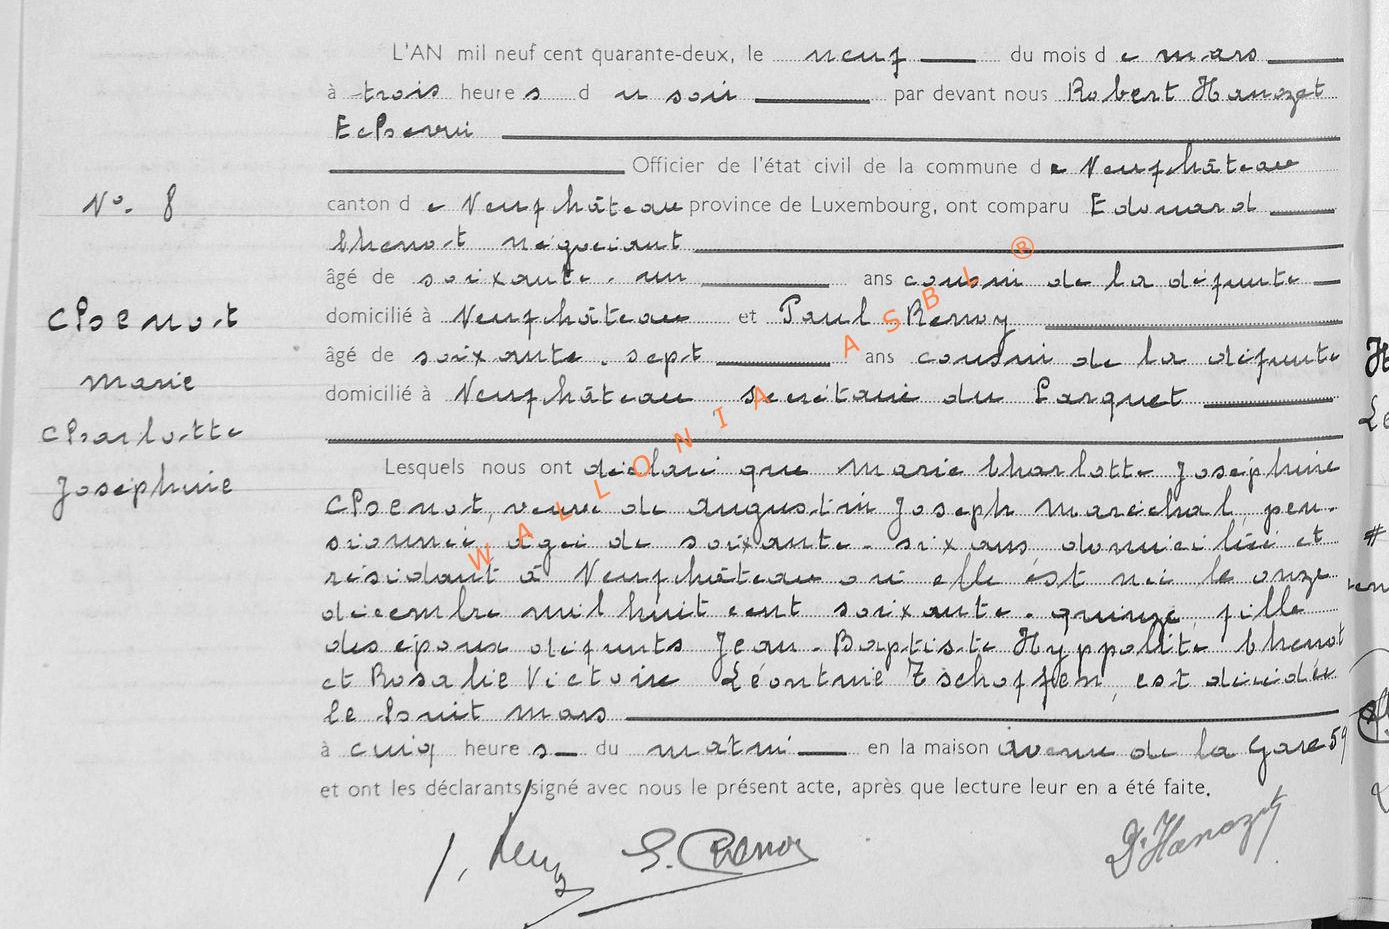 L'AN mil neuf cent quarante-deux, le neuf du mois de mars
à trois heures du soir par devant nous Robert Hanozet
Echevin
Officier de l'état civil de la commune de Neufchâteau
No. 8
canton de Neufchâteau province de Luxembourg, ont comparu Edouard
Chenot négociant
âgé de soixante-un ans cousin de la défunte
domicilié à Neufchâteau et Paul Remy
âgé de soixante-sept ans cousin de la défunte
domicilié à Neufchâteau secrétaire du Parquet
Chenot
Marie
Charlotte
Joséphine
Lesquels nous ont déclaré que Marie Charlotte Joséphine
Chenot, veuve de Augustin Joseph Maréchal, pen-
sionnée, âgée de soixante-six ans domiciliée et
résidant à Neufchâteau où elle est née le onze
décembre mil huit cent soixante-quinze, fille
des époux défunts Jean-Baptiste Hyppolite Chenot
et Rosalie Victoire Léontine Tschoffen, est décédée
le huit mars
à cinq heures du matin en la maison avenue de la Gare 59
et ont les déclarants signé avec nous le présent acte, après que lecture leur en a été faite.
E. Chenot
Dr Hanozet
WALLONIA ASBL ®